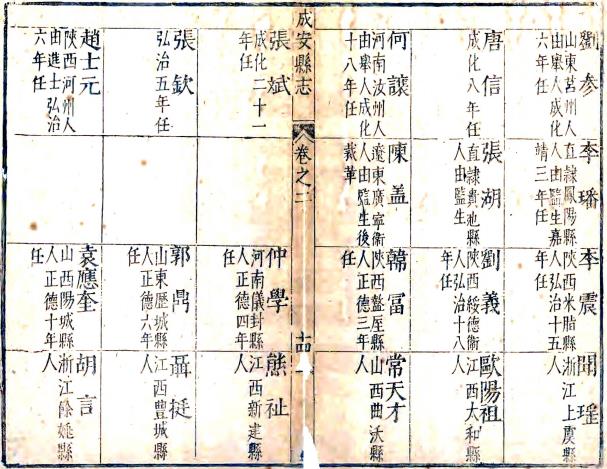 劉參
山東莒州人
由舉人成化
六年任
唐信
成化八年任
何讓
河南汝州人
由舉人成化
十八年任
李璠
直隸鳳陽縣
人由監生嘉
靖三年任
張湖
直隸貴池縣
人由監生
陳盖
遼東廣寧衛
人由監生後
裁革
李震
陝西米脂縣
人弘治十五
年任
劉義
陝西綏德衛
人弘治十八
年任
韓冨
陝西盩厔縣
人正德三年
任
聞瑤
浙江上虞縣
人
歐陽祖
江西太和縣
人
常天才
山西曲沃縣
人
成安縣志
卷之二
十四
張斌
成化二十一
年任
張欽
弘治五年任
趙士元
陝西河州人
由進士弘治
六年任
仲學
河南儀封縣
人正德四年
任
郭鼎
山東歷城縣
人正德六年
任
袁應奎
山西陽城縣
人正德十年
任
熊祉
江西新建縣
人
聶挺
江西豐城縣
人
胡言
浙江餘姚縣
人